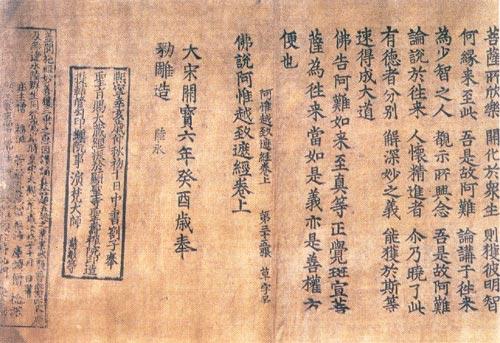 菩薩所欣樂 開化於衆生 則獲彼明智
何緣來至此 吾是故阿難 論講于往來
為少智之人 觀示所興念 吾是故阿難
論說於往來 人懷精進者 尒乃曉了此
有德者分別 解深妙之義 能獲於斯等
速得成大道
佛告阿難如來至真等正覺班宣菩
薩為往來當如是義亦是善權方
便也
阿惟越致遮經卷上 第二十五張 草字号
佛說阿惟越致遮經卷上
大宋開寶六年癸酉歲奉
勅雕造 陸永
熙寧辛亥歲仲秋初十日中書劄子奉
聖旨賜大藏經板於顯聖寺聖壽禪院印造
提轄管勾印經院事演梵大師